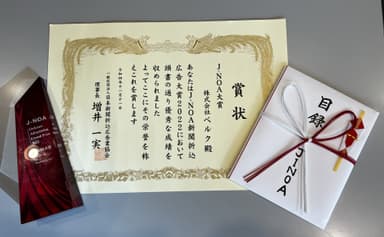 賞状
J-NOA大賞
株式会社ベルク殿
あなたはJ-NOA新聞折込
広告大賞2022において
頭書の通り優秀な成績を
収められました
よってここにその栄誉を称
えこれを賞します
令和四年十一月十一日
一般社団法人日本新聞折込広告業協会
理事長 増井一実
目録
JNOA
J-NOA